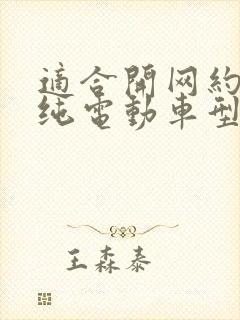 適合開网約
纯電動車型
王森泰